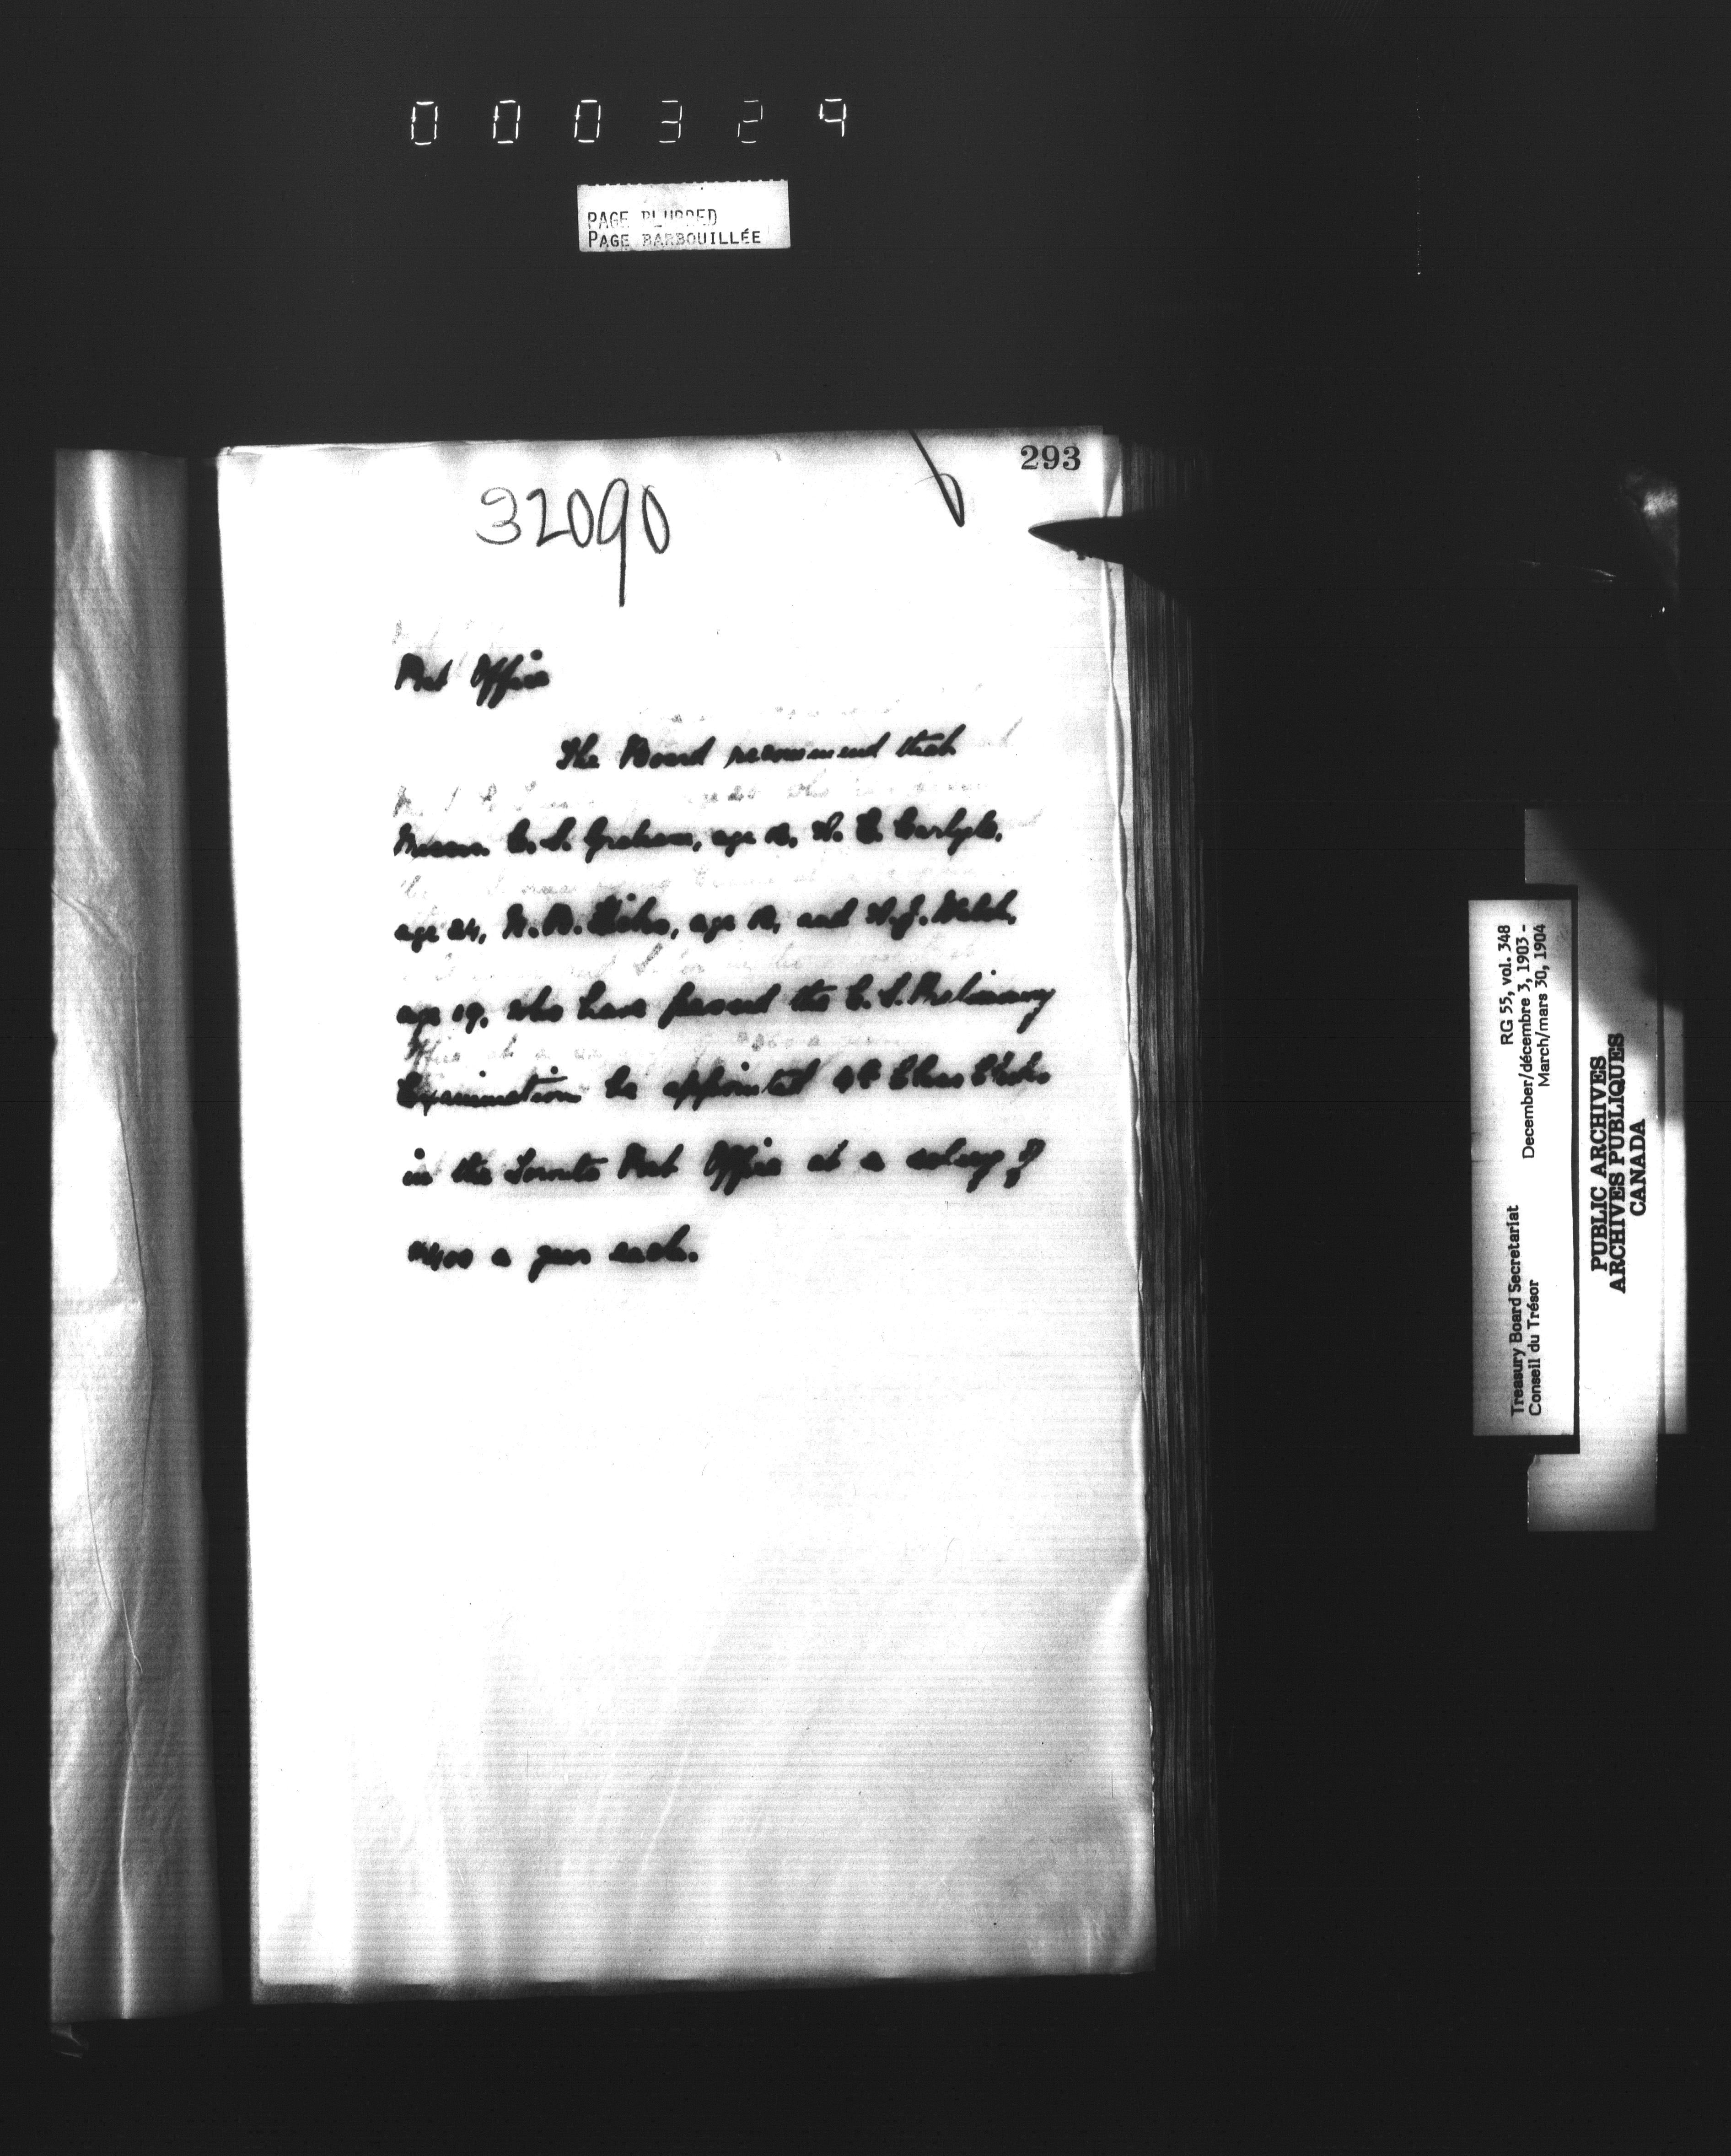 000329
PAGE BLURRED
PAGE BARBOUILLÉE
293
32090
Post Office
The Board recommend that
Messrs. C. S. Graham, age W. E. Carlyle,
age 24, age and W. J. Welsh,
age 19, who have passed the C. S. Preliminary
Examination be appointed 4th Class Clerks
in the Toronto Post Office at a salary of
$400 a year each.
Treasury Board Secretariat RG 55, vol. 348
Conseil du Trésor December/décembre 3, 1903 -
March/mars 30, 1904
PUBLIC ARCHIVES
ARCHIVES PUBLIQUES
CANADA